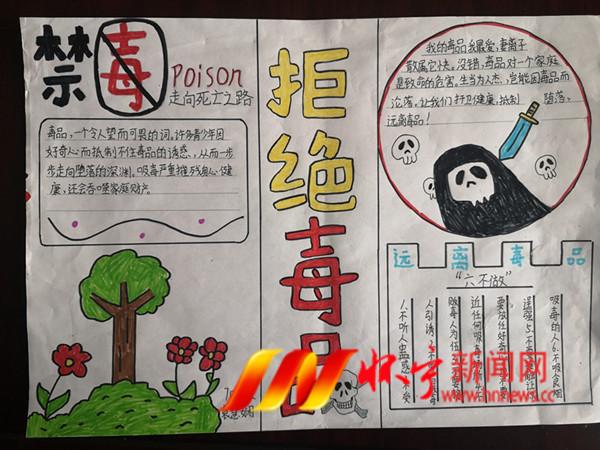 禁毒
Poison
走向死亡之路
毒品，一个令人望而可畏的词。许多青少年因
好奇心而抵制不住毒品的诱惑，从而一步
步走向堕落的深渊。吸毒严重摧残身心健
康，还会吞噬家庭财产。
拒绝毒品
我的毒品我最爱，妻离子
散属它快。没错，毒品对一个家庭
是致命的危害。生当为人杰，岂能因毒品而
沦落。让我们捍卫健康，抵制
堕落，
远离毒品！
远离毒品
“六不做”
吸毒的人6.不吸食
要放任好奇
近任何吸毒
贩毒人为伍
人引诱
1.不听人蛊惑 不受
新闻网
www.hnnews.cc